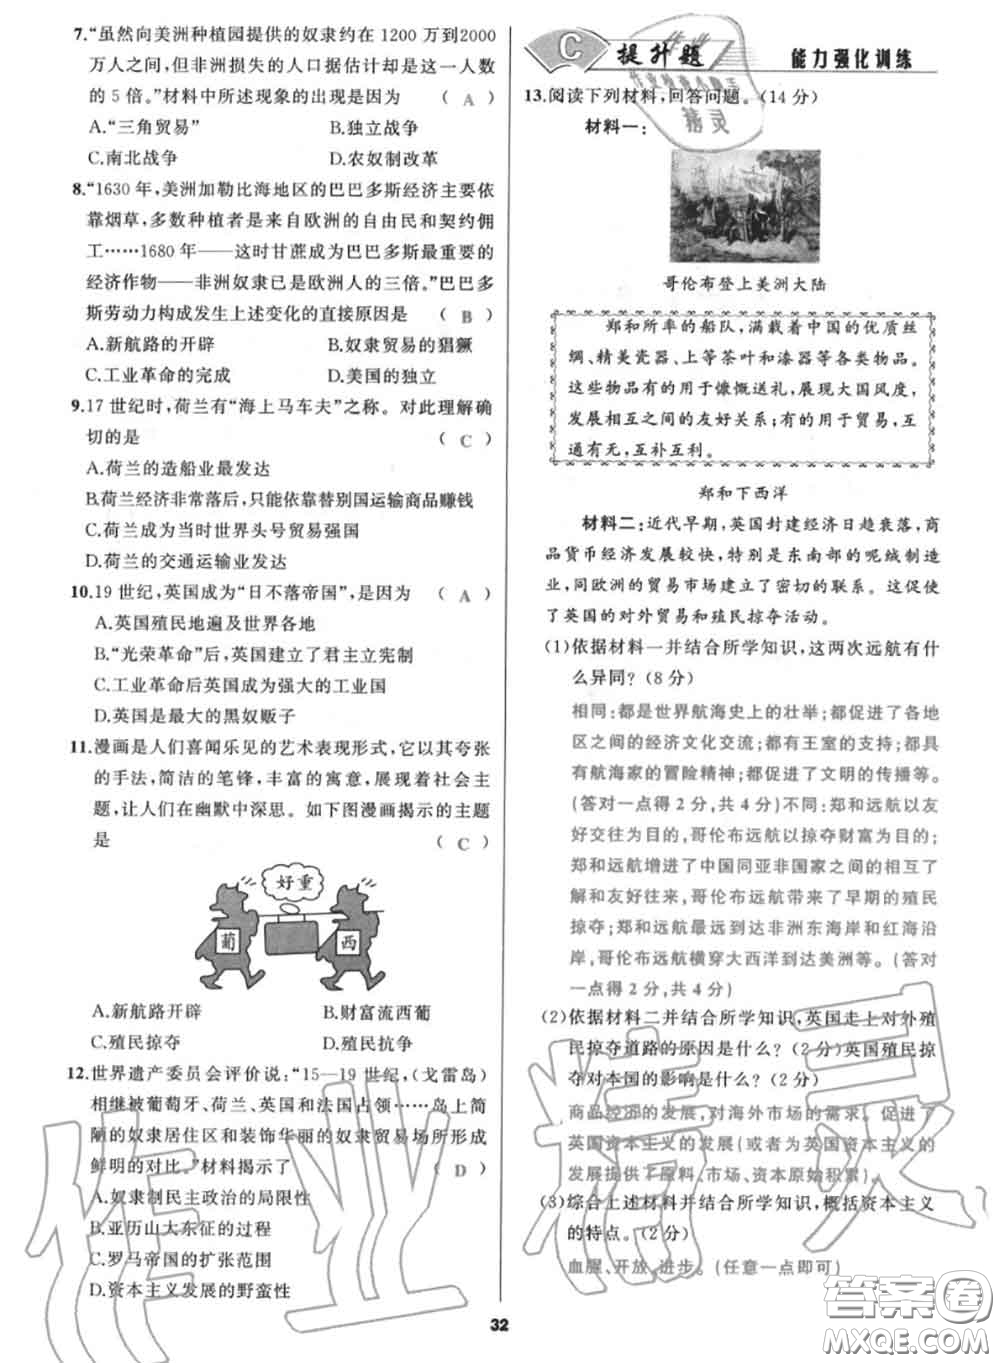 7.“虽然向美洲种植园提供的奴隶约在 1200 万到2000
万人之间,但非洲损失的人口据估计却是这一人数
的 5 倍。”材料中所述现象的出现是因为 ( A )
A.“三角贸易” B.独立战争
C.南北战争 D.农奴制改革
8.“1630 年,美洲加勒比海地区的巴巴多斯经济主要依
靠烟草,多数种植者是来自欧洲的自由民和契约佣
工……1680 年——这时甘蔗成为巴巴多斯最重要的
经济作物——非洲奴隶已是欧洲人的三倍。”巴巴多
斯劳动力构成发生上述变化的直接原因是 ( B )
A.新航路的开辟 B.奴隶贸易的猖獗
C.工业革命的完成 D.美国的独立
9.17 世纪时,荷兰有“海上马车夫”之称。对此理解确
切的是 ( C )
A.荷兰的造船业最发达
B.荷兰经济非常落后,只能依靠替别国运输商品赚钱
C.荷兰成为当时世界头号贸易强国
D.荷兰的交通运输业发达
10.19 世纪,英国成为“日不落帝国”,是因为 ( A )
A.英国殖民地遍及世界各地
B.“光荣革命”后,英国建立了君主立宪制
C.工业革命后英国成为强大的工业国
D.英国是最大的黑奴贩子
11.漫画是人们喜闻乐见的艺术表现形式,它以其夸张
的手法,简洁的笔锋,丰富的寓意,展现着社会主
题,让人们在幽默中深思。如下图漫画揭示的主题
是 ( C )
好重
葡 西
A.新航路开辟 B.财富流西葡
C.殖民掠夺 D.殖民抗争
12.世界遗产委员会评价说:“15—19 世纪,(戈雷岛)
相继被葡萄牙、荷兰、英国和法国占领……岛上简
陋的奴隶居住区和装饰华丽的奴隶贸易场所形成
鲜明的对比。”材料揭示了 ( D )
A.奴隶制民主政治的局限性
B.亚历山大东征的过程
C.罗马帝国的扩张范围
D.资本主义发展的野蛮性
C 提升题 能力强化训练
13.阅读下列材料,回答问题。(14 分)
材料一:
哥伦布登上美洲大陆
郑和所率的船队,满载着中国的优质丝
绸、精美瓷器、上等茶叶和漆器等各类物品。
这些物品有的用于慷慨送礼,展现大国风度,
发展相互之间的友好关系;有的用于贸易,互
通有无,互补互利。
郑和下西洋
材料二:近代早期,英国封建经济日趋衰落,商
品货币经济发展较快,特别是东南部的呢绒制造
业,同欧洲的贸易市场建立了密切的联系。这促使
了英国的对外贸易和殖民掠夺活动。
(1)依据材料一并结合所学知识,这两次远航有什
么异同?(8 分)
相同:都是世界航海史上的壮举;都促进了各地
区之间的经济文化交流;都有王室的支持;都具
有航海家的冒险精神;都促进了文明的传播等。
(答对一点得 2 分,共 4 分)不同:郑和远航以友
好交往为目的,哥伦布远航以掠夺财富为目的;
郑和远航增进了中国同亚非国家之间的相互了
解和友好往来,哥伦布远航带来了早期的殖民
掠夺;郑和远航最远到达非洲东海岸和红海沿
岸,哥伦布远航横穿大西洋到达美洲等。(答对
一点得 2 分,共 4 分)
(2)依据材料二并结合所学知识,英国走上对外殖
民掠夺道路的原因是什么?(2 分)英国殖民掠
夺对本国的影响是什么?(2 分)
商品经济的发展,对海外市场的需求。促进了
英国资本主义的发展(或者为英国资本主义的
发展提供了原料、市场、资本原始积累)。
(3)综合上述材料并结合所学知识,概括资本主义
的特点。(2 分)
血腥、开放、进步。(任意一点即可)
32
作业精灵
答案圈
MXQE.COM